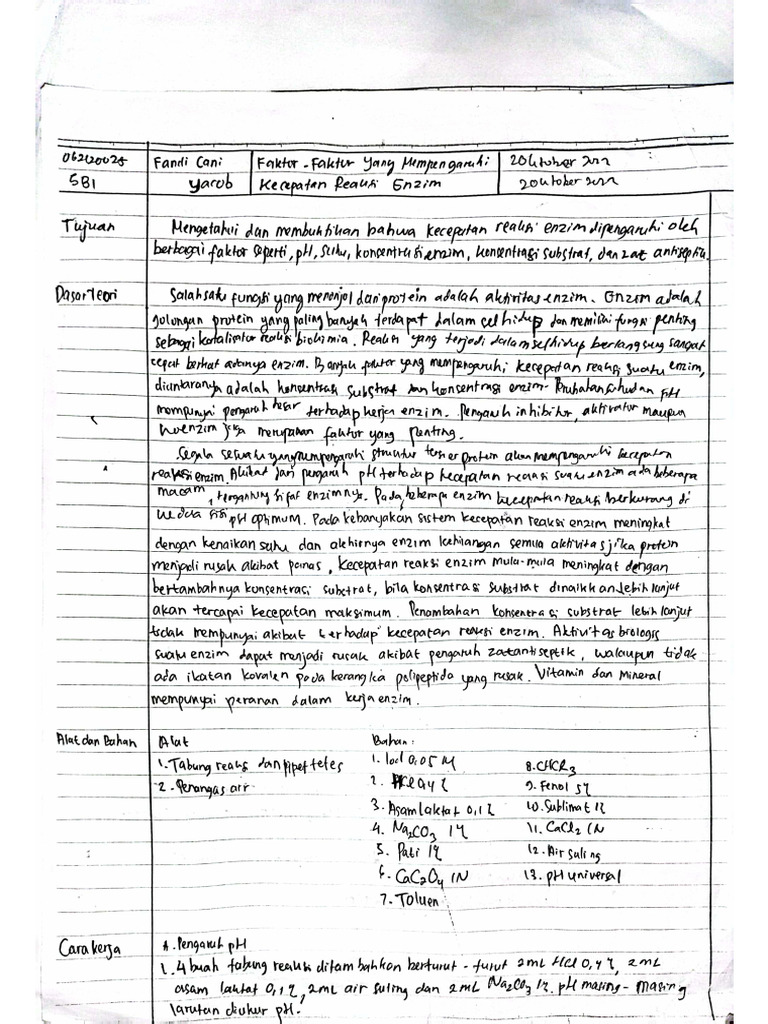 062120025 Fandi Cani Faktor-Faktor Yang Mempengaruhi 2 Oktober 2022
5B1 Yacob Kecepatan Reaksi Enzim 2 Oktober 2022
Tujuan Mengetahui dan membuktikan bahwa kecepatan reaksi enzim dipengaruhi oleh
berbagai faktor seperti, pH, suhu, konsentrasi enzim, konsentrasi substrat, dan zat antiseptik.
Dasar Teori Salah satu fungsi yang menonjol dari protein adalah aktivitas enzim. Enzim adalah
golongan protein yang paling banyak terdapat dalam sel hidup dan memiliki fungsi penting
sebagai katalisator reaksi biokimia. Reaksi yang terjadi dalam sel hidup berlangsung sangat
cepat berkat adanya enzim. Banyak faktor yang mempengaruhi kecepatan reaksi suatu enzim,
diantaranya adalah konsentrasi substrat dan konsentrasi enzim. Perubahan suhu dan pH
mempunyai pengaruh besar terhadap kerja enzim. Pengaruh inhibitor, aktivator maupun
koenzim juga merupakan faktor yang penting.
Segala sesuatu yang mempengaruhi struktur tersier protein akan mempengaruhi kecepatan
reaksi enzim. Akibat dari pengaruh pH terhadap kecepatan reaksi suatu enzim ada beberapa
macam, tergantung sifat enzimnya. Pada beberapa enzim kecepatan reaksi berkurang di
kedua sisi pH optimum. Pada kebanyakan sistem kecepatan reaksi enzim meningkat
dengan kenaikan suhu dan akhirnya enzim kehilangan semua aktivitas jika protein
menjadi rusak akibat panas, kecepatan reaksi enzim mula-mula meningkat dengan
bertambahnya konsentrasi substrat, bila konsentrasi substrat dinaikkan lebih lanjut
akan tercapai kecepatan maksimum. Penambahan konsentrasi substrat lebih lanjut
tidak mempunyai akibat terhadap kecepatan reaksi enzim. Aktivitas biologis
suatu enzim dapat menjadi rusak akibat pengaruh zat antiseptik, walaupun tidak
ada ikatan kovalen pada kerangka polipeptida yang rusak. Vitamin dan Mineral
mempunyai peranan dalam kerja enzim.
Alat dan Bahan Alat Bahan:
1. Tabung reaksi dan pipet tetes
2. Penangas air
1. Iod 0,05 M
2. HCl 0,4%
3. Asam laktat 0,1%
4. Na2CO3 1%
5. Pati 1%
6. CaC2O4 1N
7. Toluen
8. CHCl3
9. Fenol 5%
10. Sublimat 1%
11. CaCl2 1N
12. Air suling
13. pH universal
Cara kerja A. Pengaruh pH
1. 4 buah tabung reaksi ditambahkan berturut-turut 2mL HCl 0,4%, 2mL
asam laktat 0,1%, 2mL air suling dan 2mL Na2CO3 1%. pH masing-masing
larutan diukur pH.